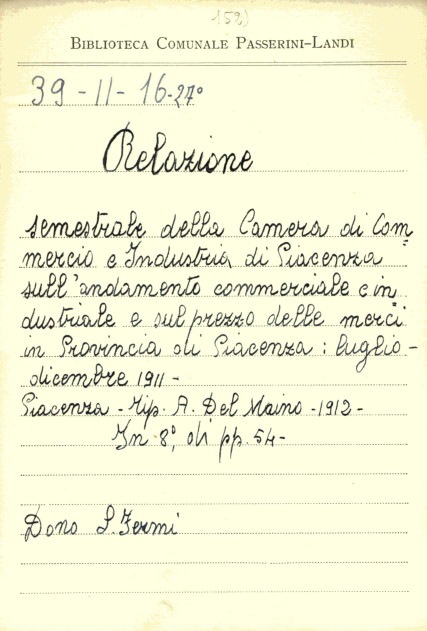 152)
BIBLIOTECA COMUNALE PASSERINI-LANDI
39-11-16-27°
Relazione
semestrale della Camera di Com
mercio e Industria di Piacenza
sull'andamento commerciale e in
dustriale e sul prezzo delle merci
in Provincia di Piacenza: luglio-
dicembre 1911-
Piacenza - Tip. A. Del Maino -1912-
In 8°, di pp. 54-
Dono S. Fermi